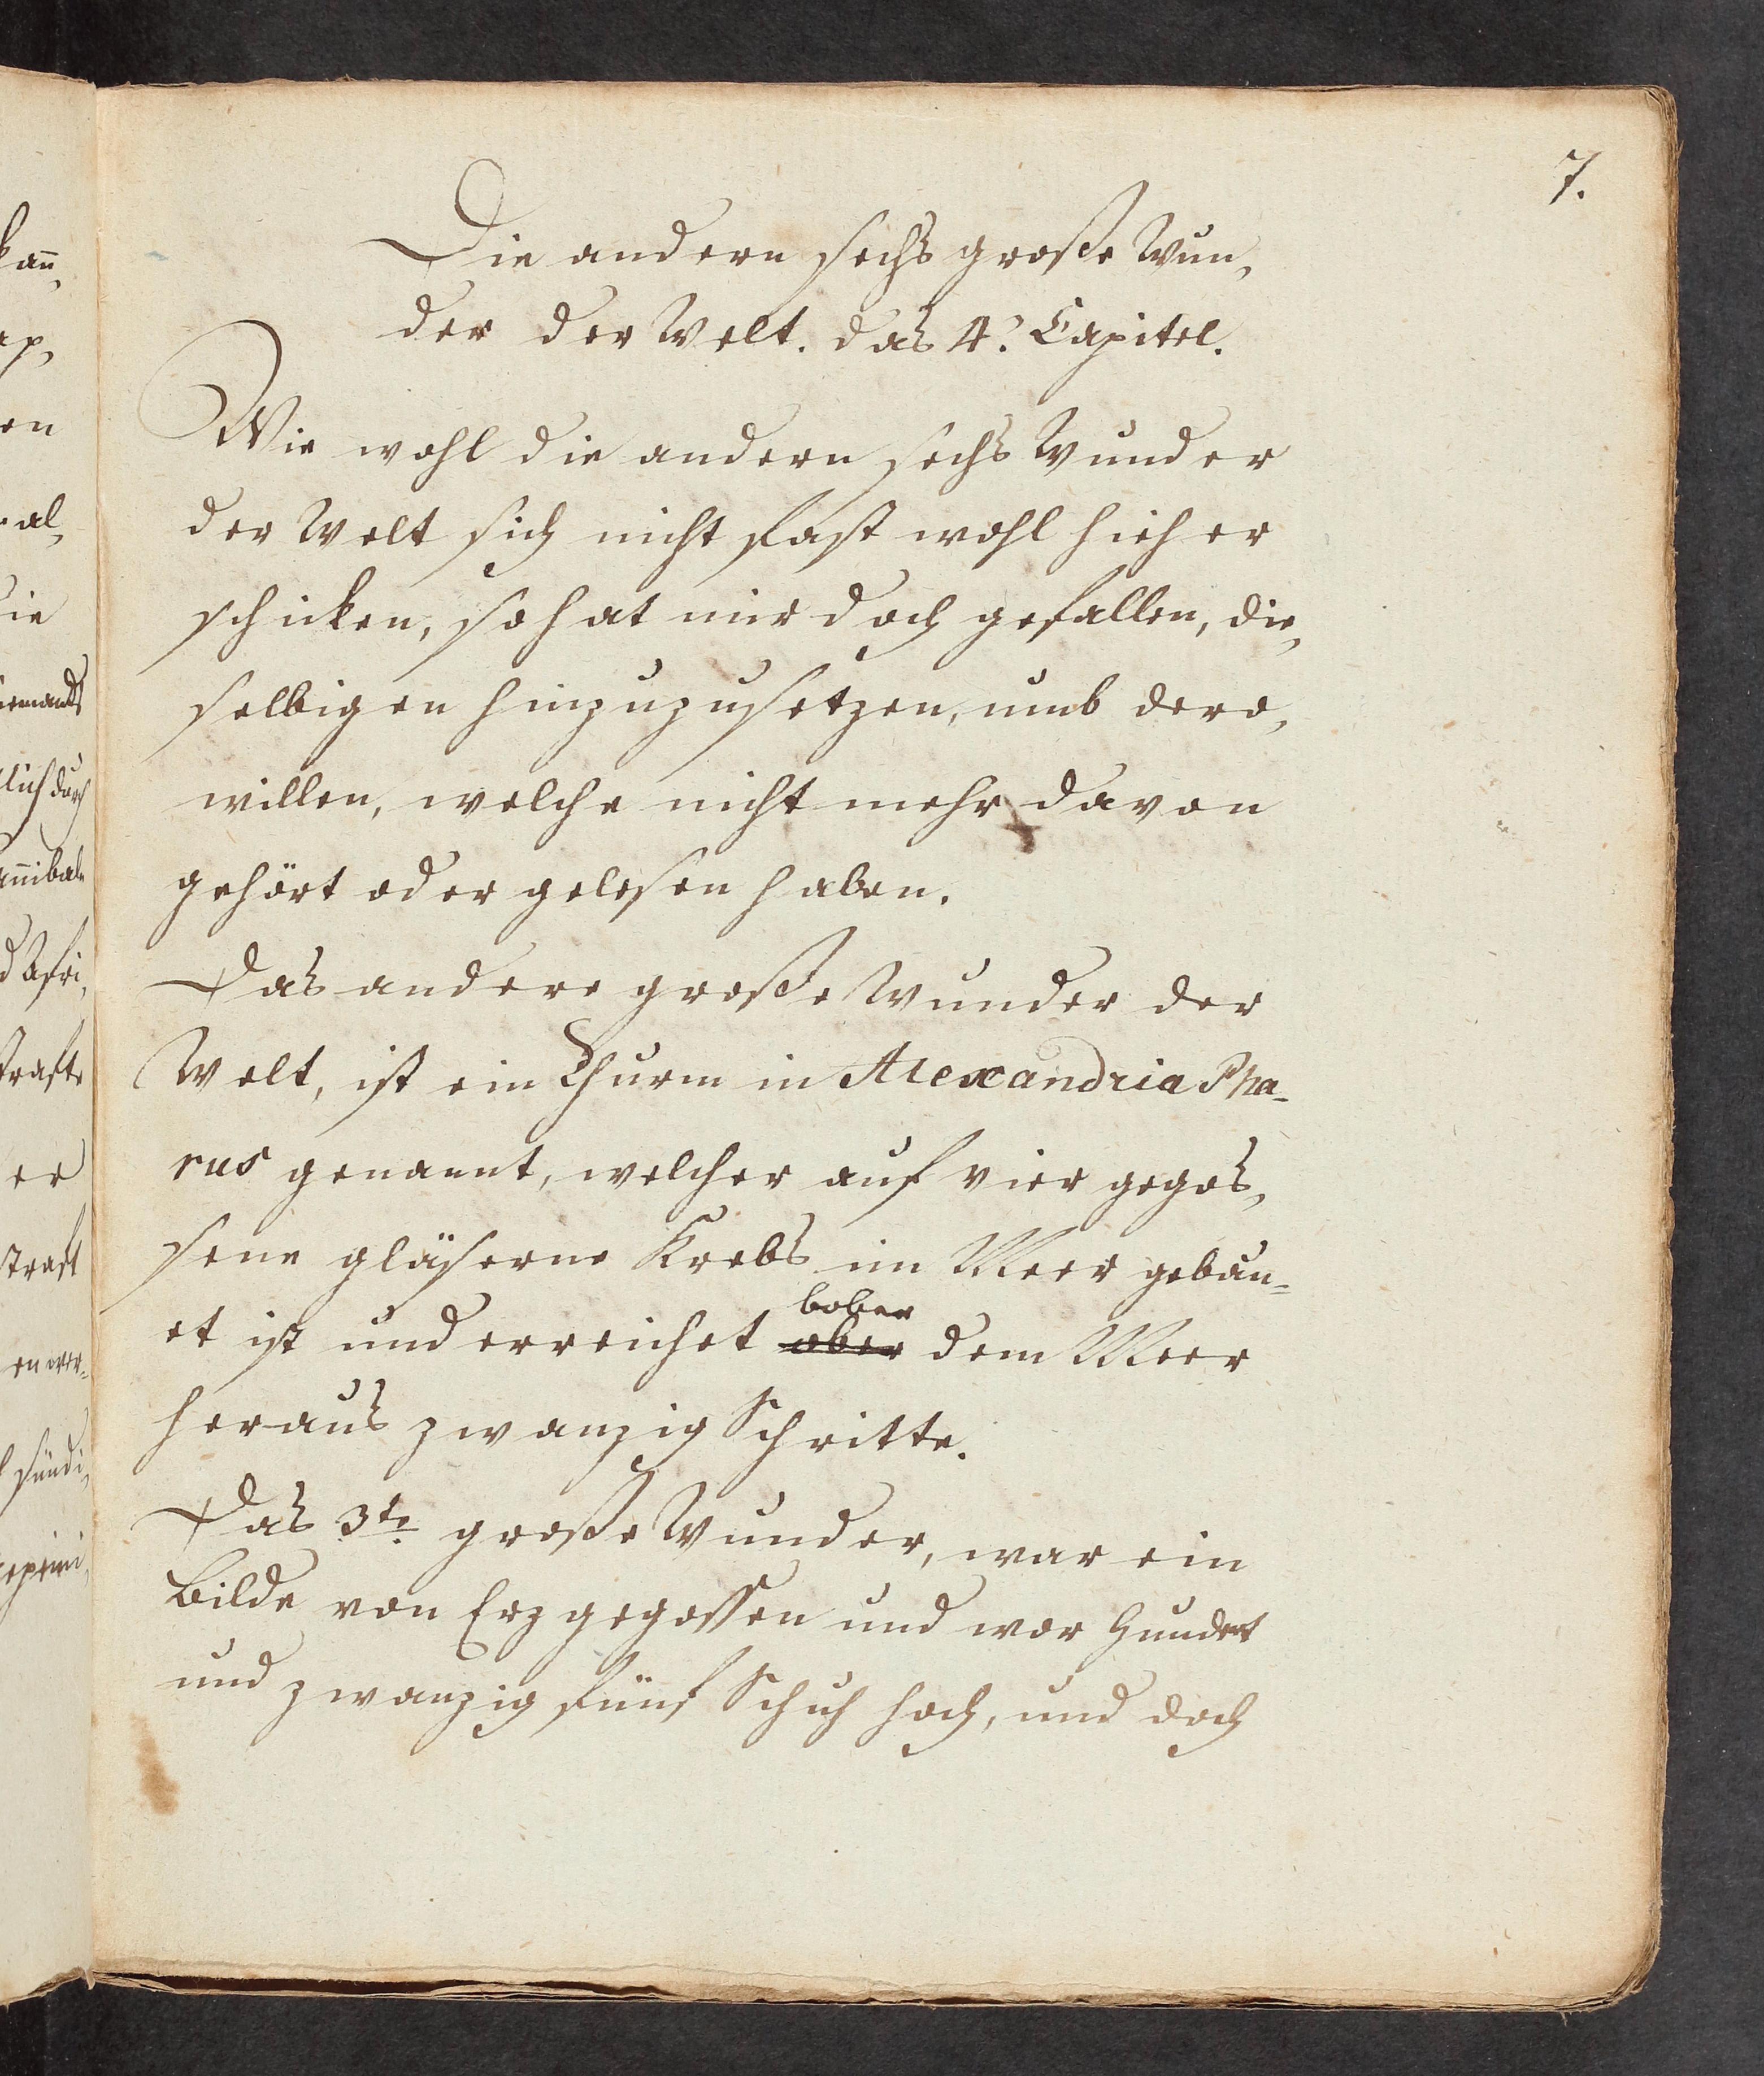 7.
Die andern sechs große Wun,
der der Welt. das 4. Capitel.
Wie wohl die andern sechs Wunder
der Welt sich nicht fast wohl hieher
schicken, so hat mir doch gefallen, die,
selbigen hinzuzusetzen, umb dero,
willen, welche nicht mehr davon
gehört oder gelesen haben.
Das andere große Wunder der
Welt, ist ein Thurm in Alexandria Pha-
rus genannt, welcher auf vier gegos,
sene gläserne Krebs im Meer gebau=
bober
et ist und erreichet ober dem Meer
heraus zwanzig Schritte.
Das 3te große Wunder, war ein
Bilde von Erz gegossen und war Hundert
und zwanzig fünf Schuh hoch, und doch
kann,
ap,
en
al,
die
iemands
lich durch
annibal
d Afri,
er
straft